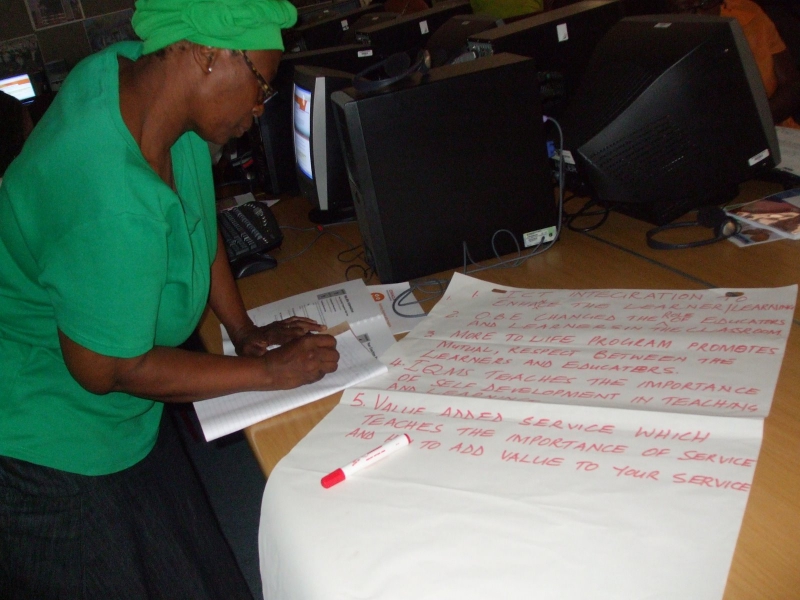 1. ICT INTEGRATION TO
ENHANCE THE LEARNER/LEARNING
2. O.B.E CHANGED THE ROLE EDUCATORS
AND LEARNERS IN THE CLASSROOM
3. MORE TO LIFE PROGRAM PROMOTES
MUTUAL, RESPECT BETWEEN THE
LEARNERS AND EDUCATORS.
4. IQMS TEACHES THE IMPORTANCE
OF SELF DEVELOPMENT IN TEACHING
AND LEARNING
5. VALUE ADDED SERVICE WHICH
TEACHES THE IMPORTANCE OF SERVICE
AND TO ADD VALUE TO YOUR SERVICE